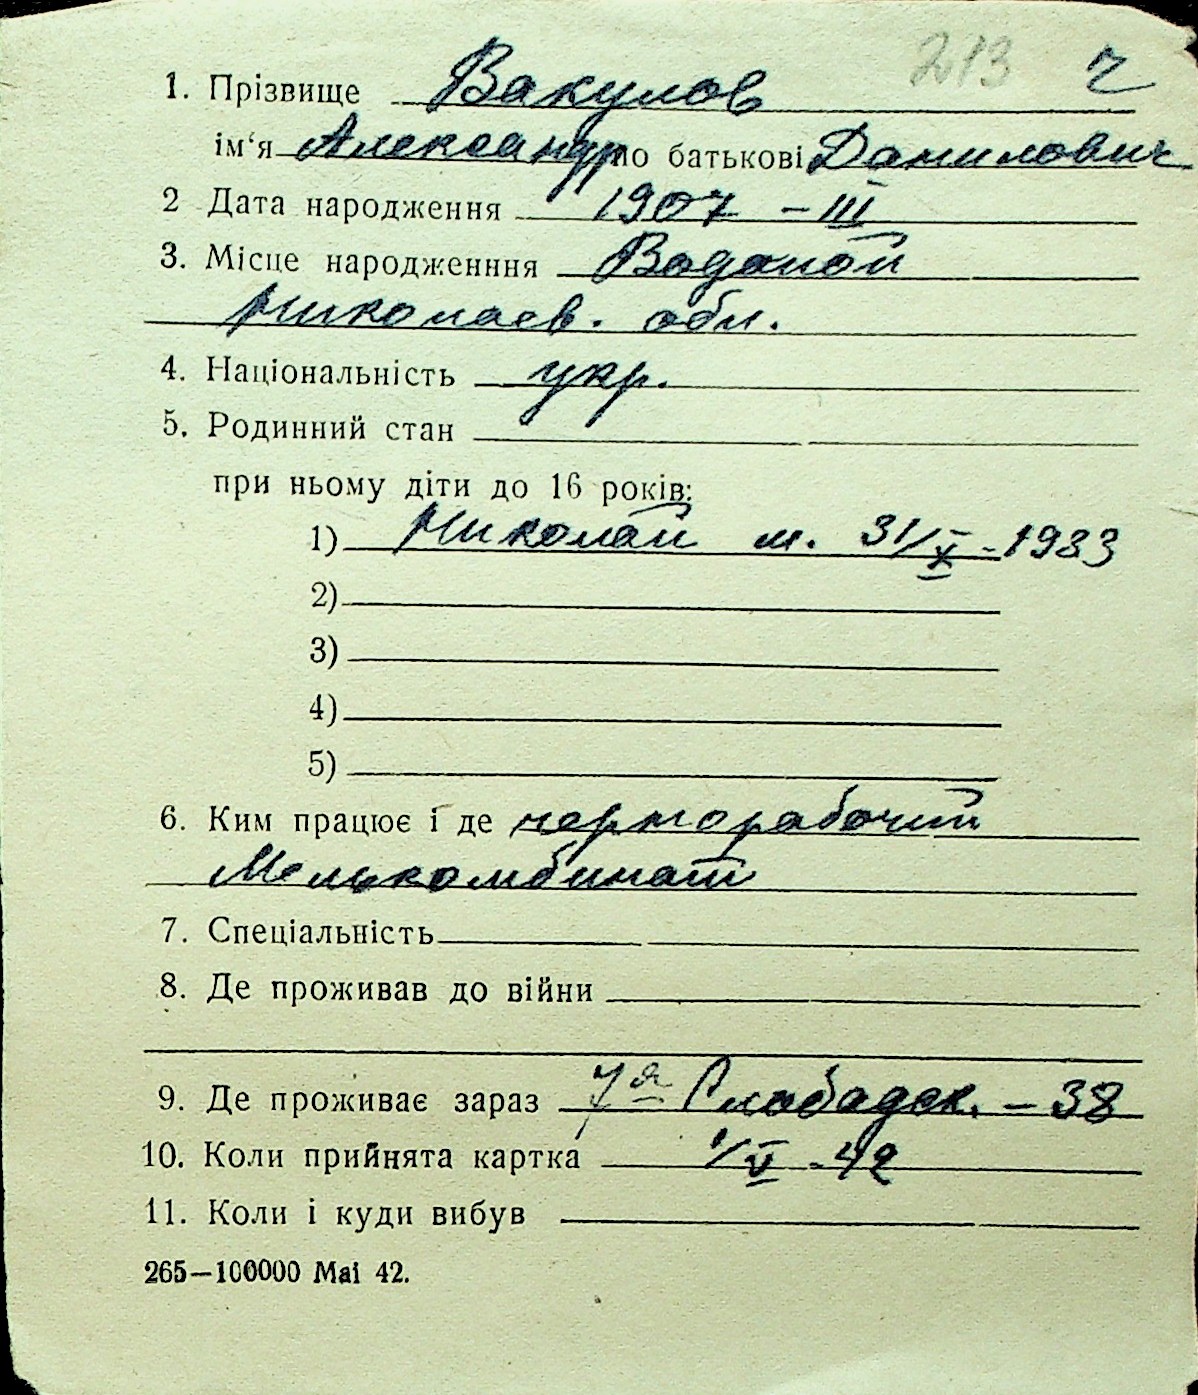 213 ч
1. Прізвище Вакулов
ім‘я Александр по батькові Данилович
2 Дата народження 1907 – III
3. Місце народженння Водопой
Николаев. обл.
4. Національність укр.
5. Родинний стан
при ньому діти до 16 років:
1) Николай м. 31/X - 1933
2)
3)
4)
5)
6. Ким працює і де чернорабочий
Мелькомбинат
7. Спеціальність
8. Де проживав до війни
9. Де проживає зараз 7я Слободск. – 38
10. Коли прийнята картка 1/V - 42
11. Коли і куди вибув
265—100000 Mai 42.